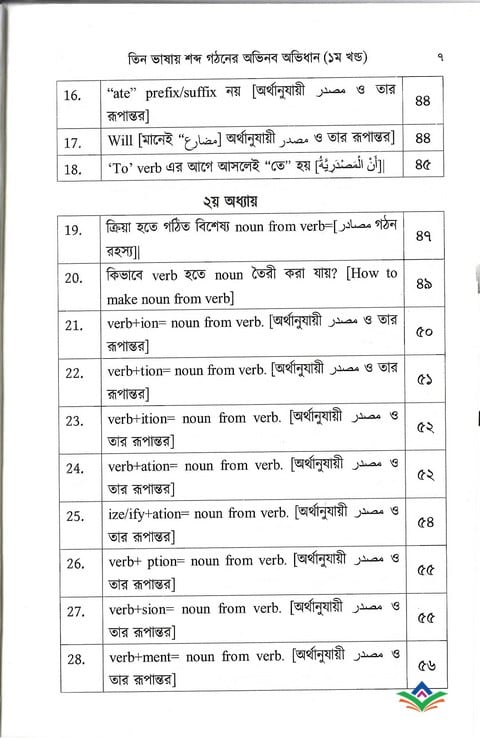 তিন ভাষায় শব্দ গঠনের অভিনব অভিধান (১ম খন্ড) ৭
16. “ate” prefix/suffix নয় [অর্থানুযায়ী مصدر ও তার ৪৪
রূপান্তর]
17. Will [মানেই “مضارع] অর্থানুযায়ী مصدر ও তার রূপান্তর] ৪৪
18. ‘To’ verb এর আগে আসলেই “তে” হয় [أَنْ الْمَصْدَرِيَّةُ]| ৪৫
২য় অধ্যায়
19. ক্রিয়া হতে গঠিত বিশেষ্য noun from verb=[مصادر গঠন ৪৭
রহস্য]|
20. কিভাবে verb হতে noun তৈরী করা যায়? [How to ৪৯
make noun from verb]
21. verb+ion= noun from verb. [অর্থানুযায়ী مصدر ও তার ৫০
রূপান্তর]
22. verb+tion= noun from verb. [অর্থানুযায়ী مصدر ও তার ৫১
রূপান্তর]
23. verb+ition= noun from verb. [অর্থানুযায়ী مصدر ও ৫২
তার রূপান্তর]
24. verb+ation= noun from verb. [অর্থানুযায়ী مصدر ও ৫২
তার রূপান্তর]
25. ize/ify+ation= noun from verb. [অর্থানুযায়ী مصدر ও ৫৪
তার রূপান্তর]
26. verb+ ption= noun from verb. [অর্থানুযায়ী مصدر ও ৫৫
তার রূপান্তর]
27. verb+sion= noun from verb. [অর্থানুযায়ী مصدر ও ৫৫
তার রূপান্তর]
28. verb+ment= noun from verb. [অর্থানুযায়ী مصدر ও ৫৬
তার রূপান্তর]